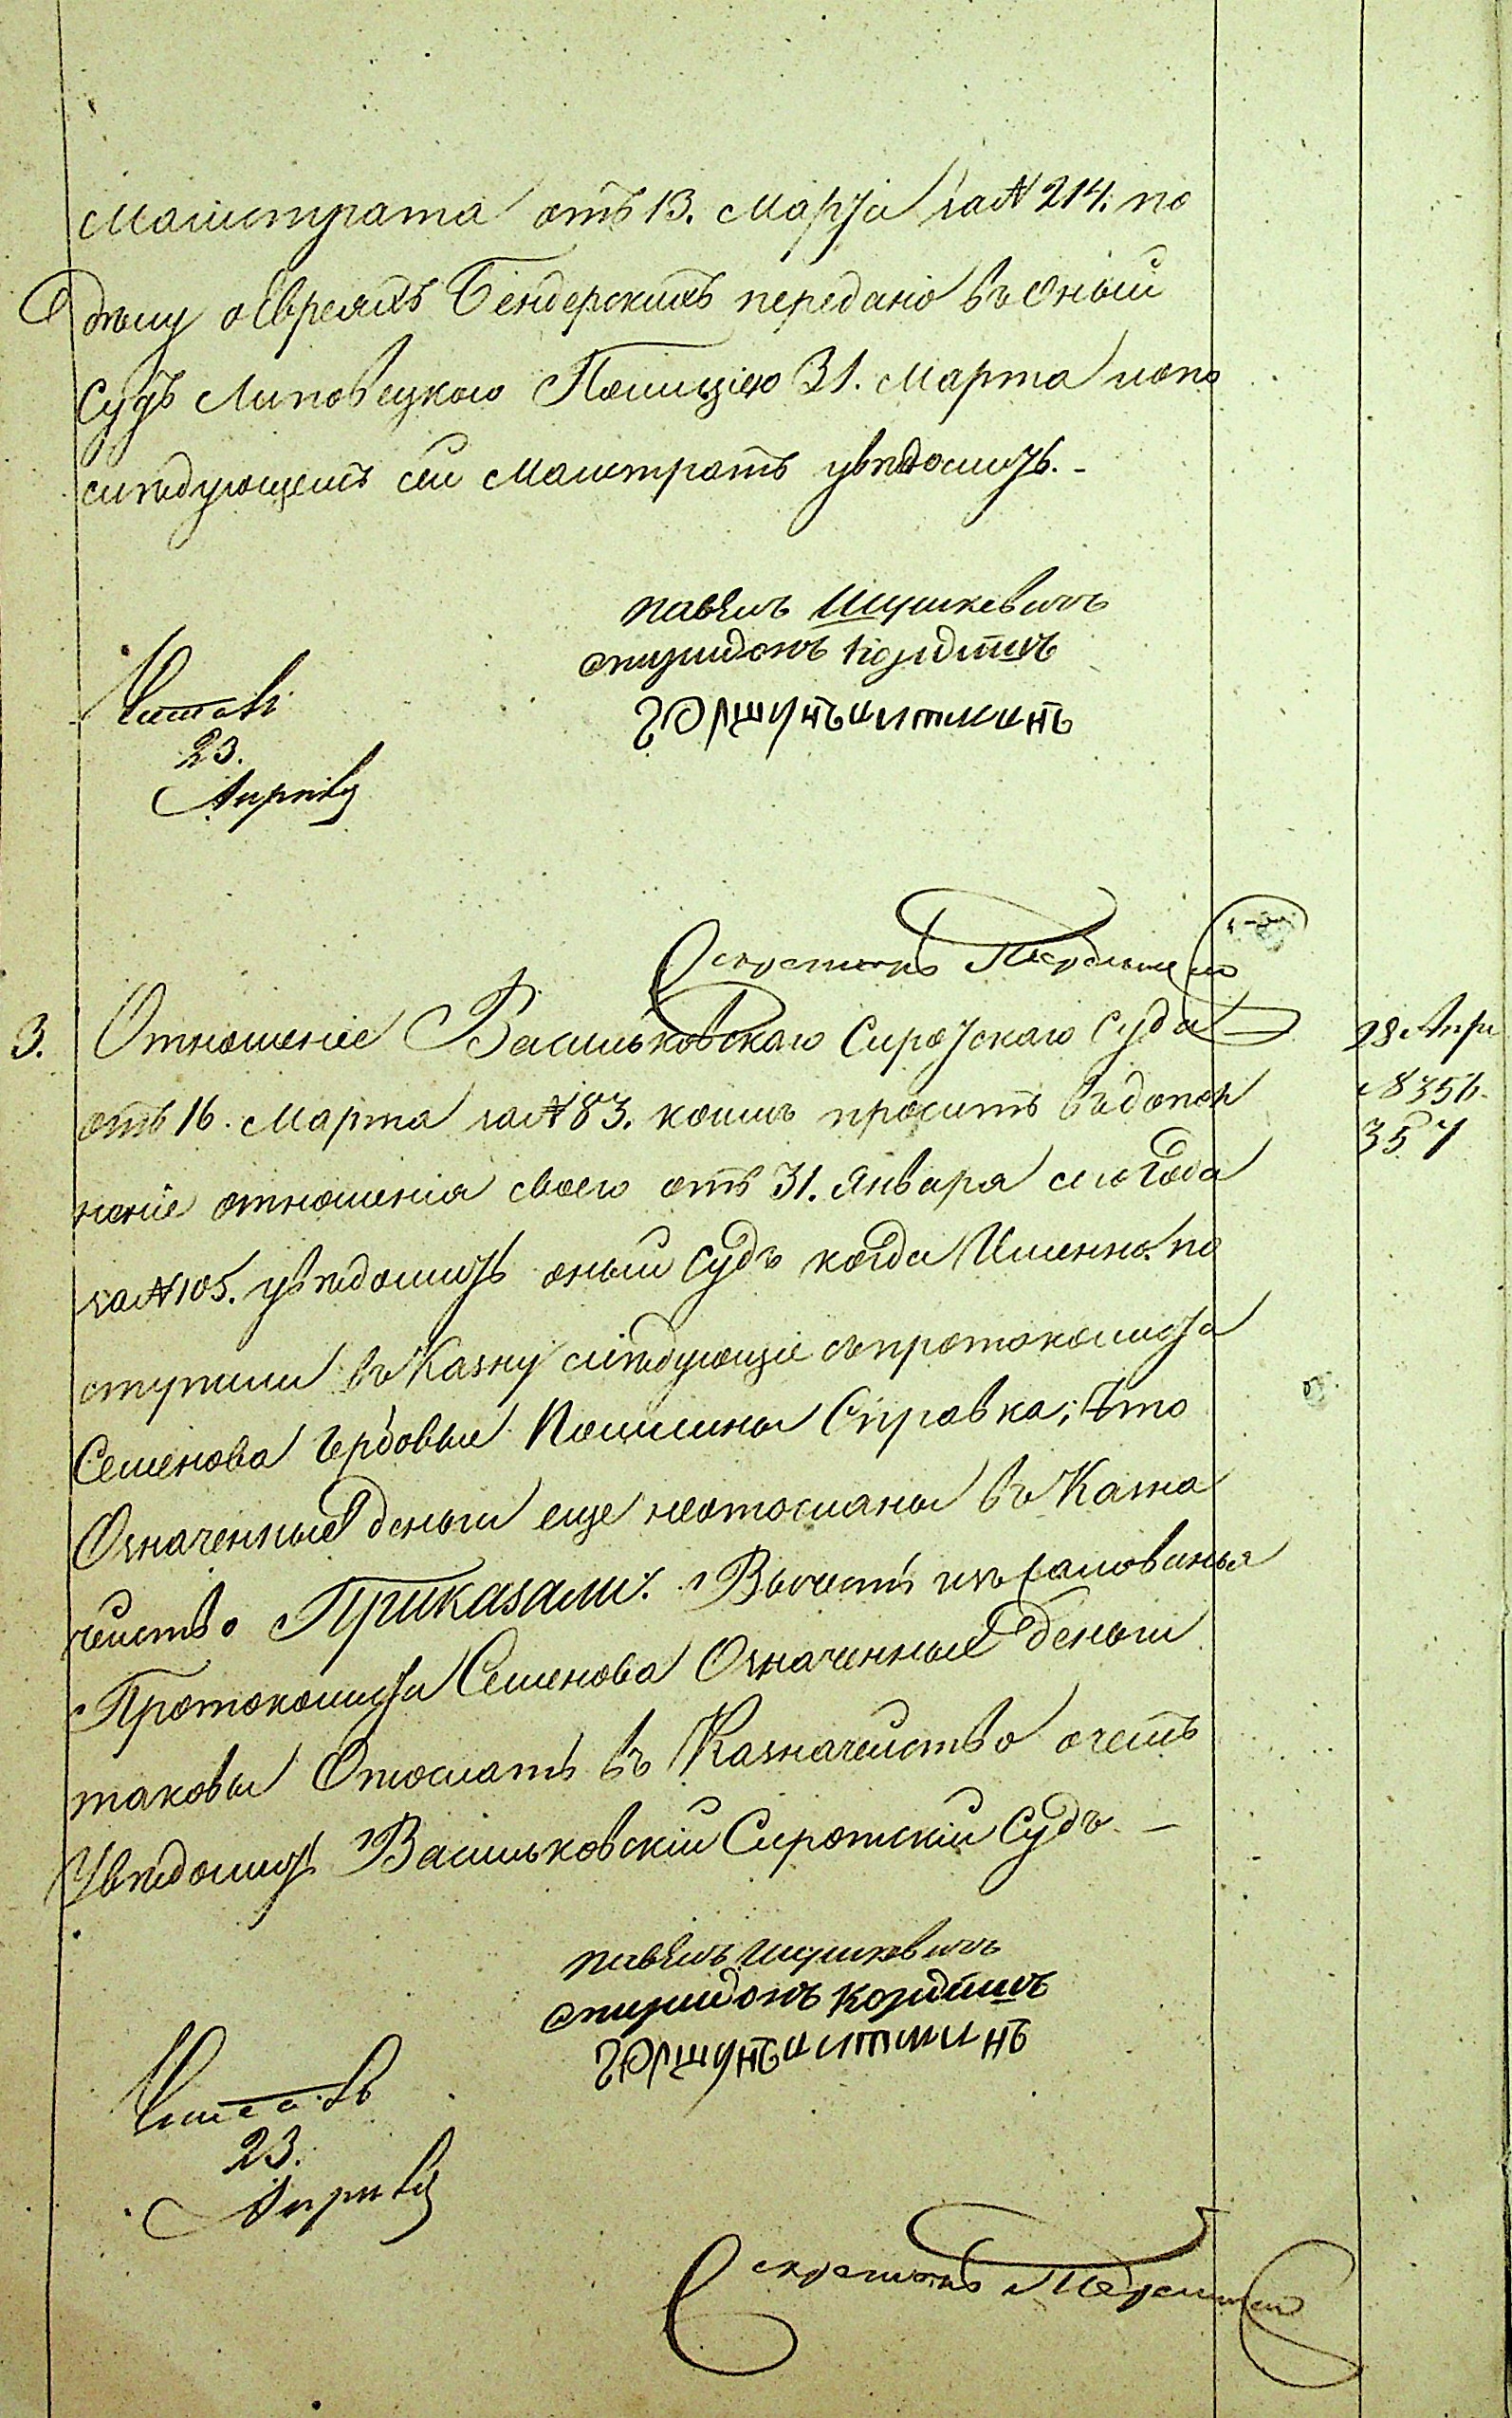 Магистрата отъ 13. Марта за № 214. по
дѣлу о Евреяхъ Бендерскихъ передано въ оный
Судъ Липовецкою Полициею 31. Марта и о по
слѣдующемъ сей Магистратъ увѣдомить. -
Павелъ Шушкевичъ
Спиридонъ
Читалъ
23.
Секретарь
3. Отношеніе Васильковскаго Сиротскаго Суда
отъ 16. Марта за № 83. коимъ проситъ въ допол
неніе отношенія своего отъ 31. Января сего Года
за № 105. увѣдомить оный Судъ когда Именно по
ступили въ Казну слѣдующіе съ протоколиста
Семенова Гербовые Пошлины Справка; Что
Означенные деньги еще неотосланы въ Казна
чейство Приказали: Вычесть изъ жалованья
Протоколиста Семенова Означенные деньги
таковы Отослать въ Казначейство о чемъ
Увѣдомить Васильковскій Сиротскій Судъ —
28 Апрѣ
№ 356.
357
Павелъ Шушкевичъ
Спиридонъ
Читалъ
23.
Секретарь